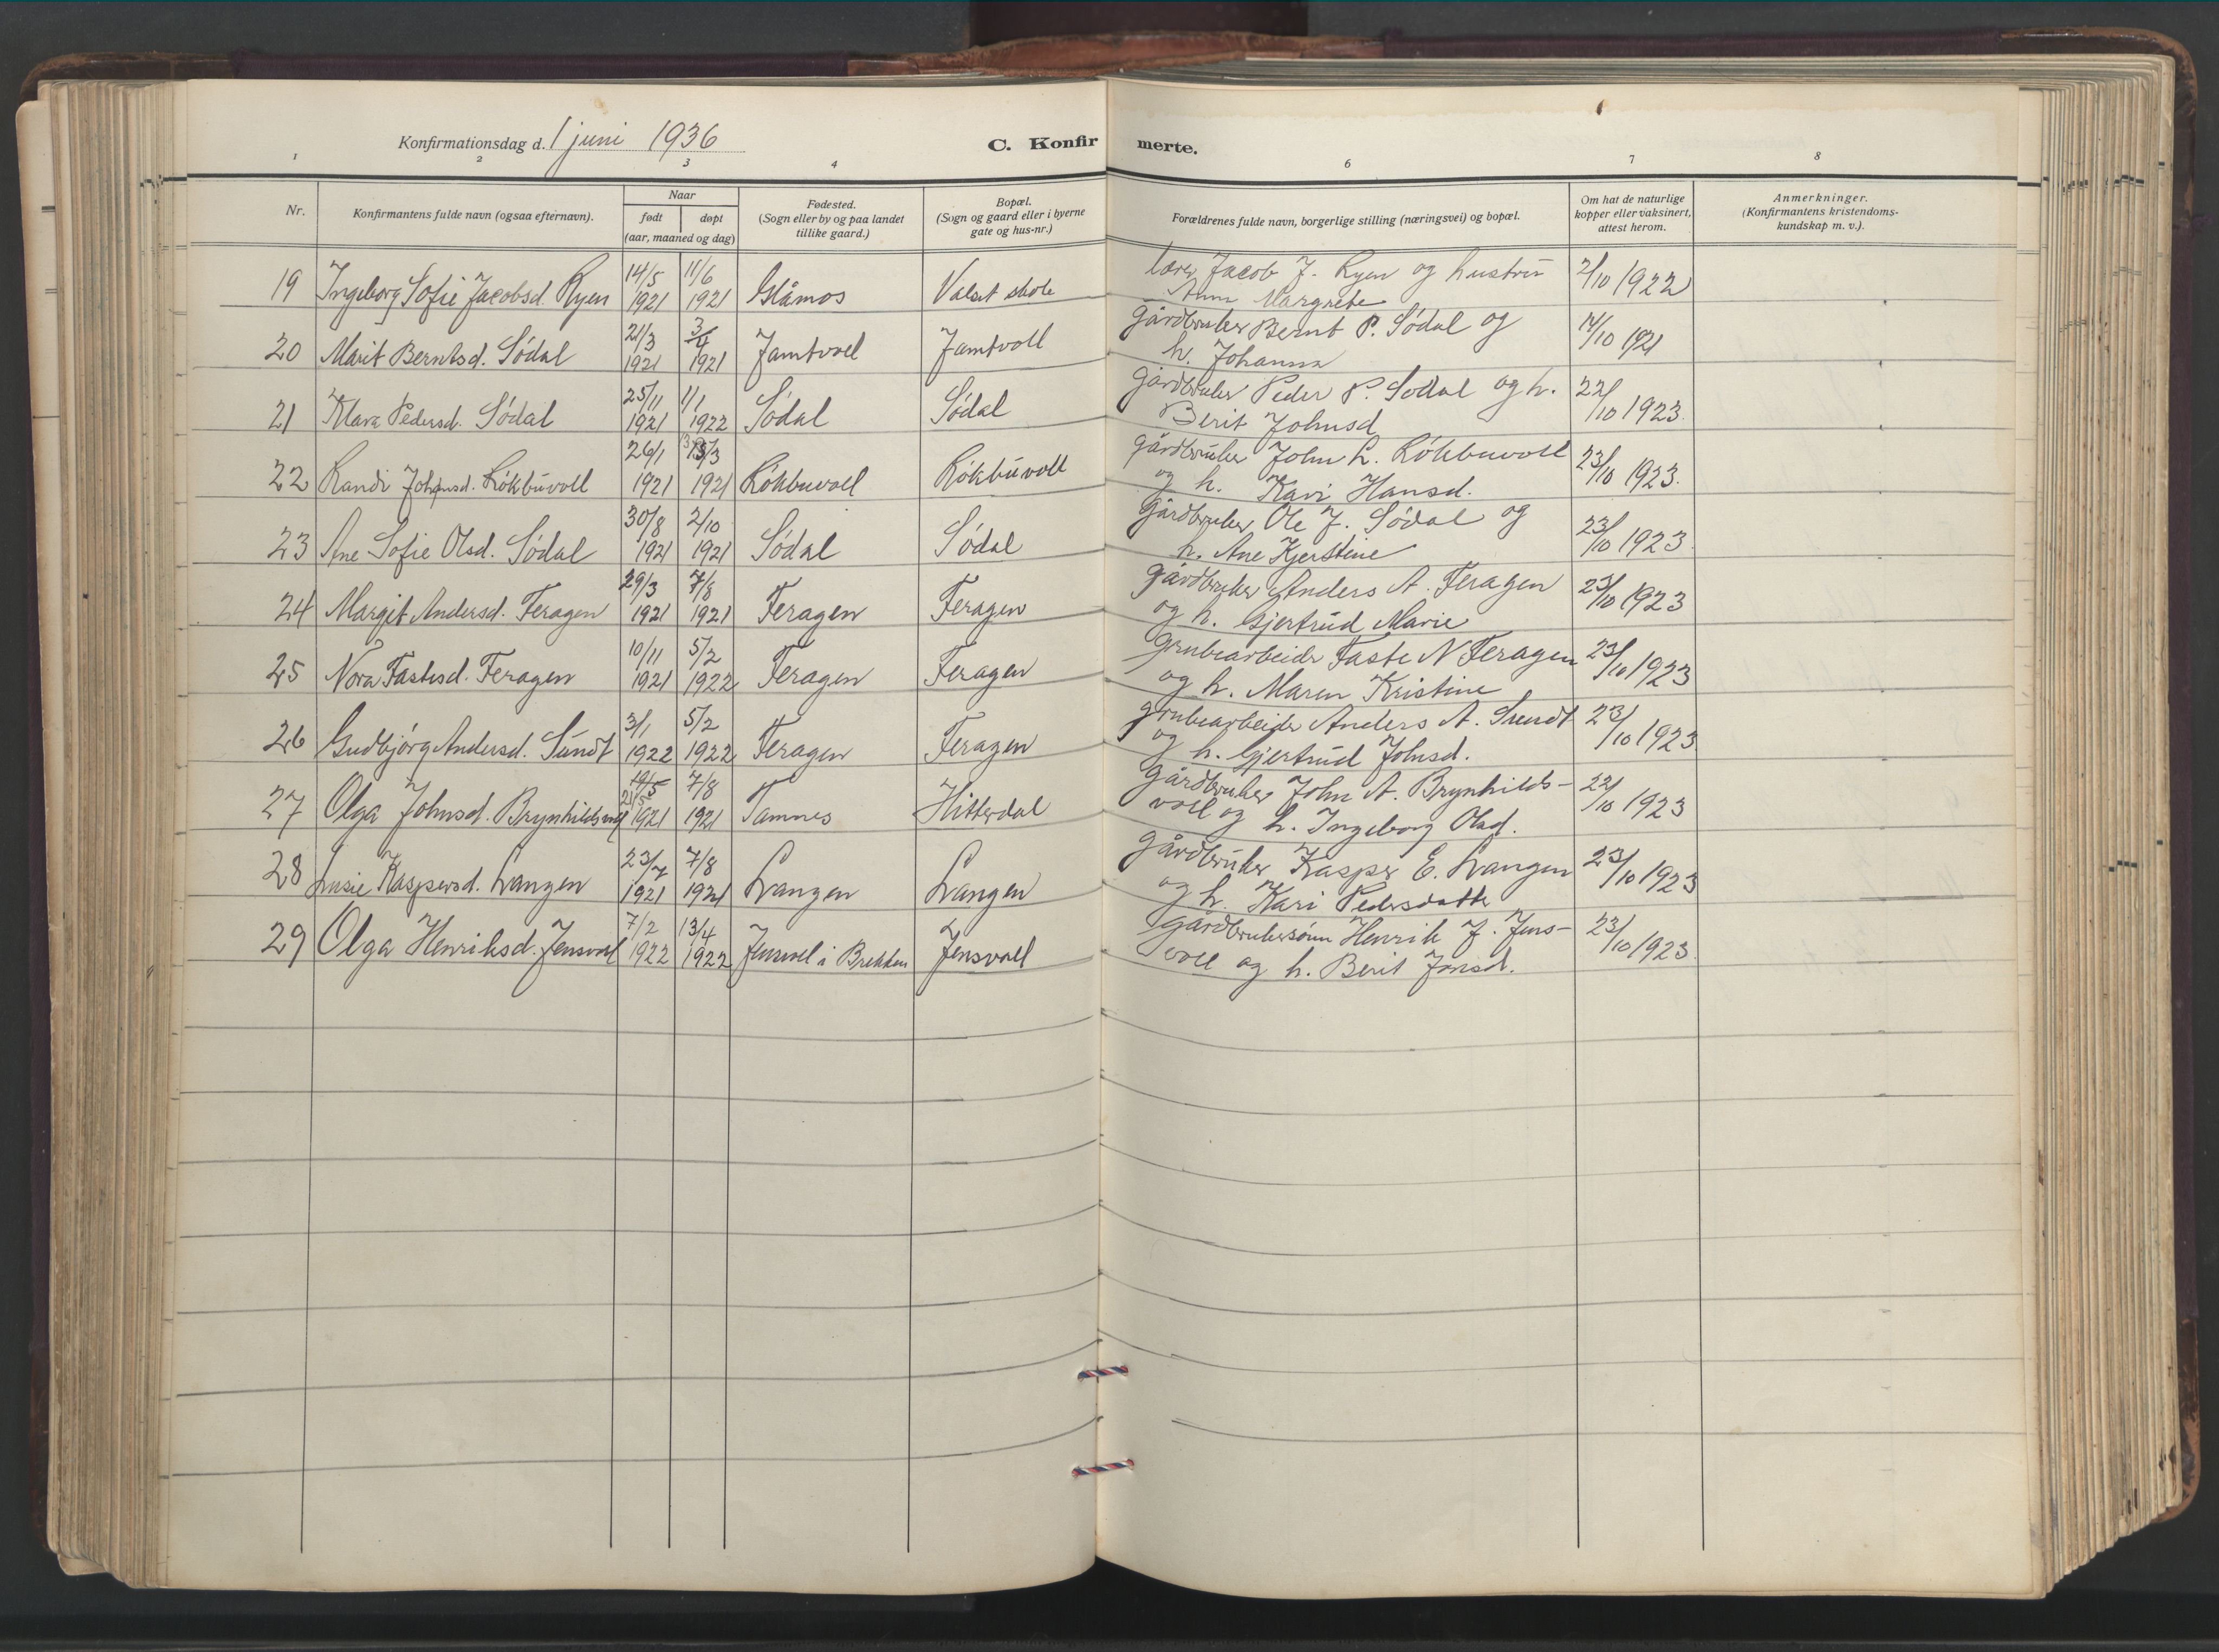 Konfirmationsdag d. 1 juni 1936
C. Konfirmerte.
1 2 3 4 6 7 8
Nr.
Konfirmantens fulde navn (ogsaa efternavn).
Naar
født døpt
(aar, maaned og dag)
Fødested.
(Sogn eller by og paa landet
tillike gaard.)
Bopæl.
(Sogn og gaard eller i byerne
gate og hus-nr.)
Forældrenes fulde navn, borgerlige stilling (næringsvei) og bopæl.
Om hat de naturlige
kopper eller vaksinert,
attest herom.
Anmerkninger.
(Konfirmantens kristendoms-
kundskap m. v.).
19 Ingeborg Sofie Jacobsd. Ryen 14/5 1921 11/6 1921 Glåmos Valset skole
lærer Jacob J. Ryen og hustru
Anna Margrete
2/10 1922
20 Marit Berntsd. Sódal 21/3 1921 3/4 1921 Jamtvoll Jamtvoll
gårdbruker Bernt P. Sódal og
h. Johanna
14/10 1921
21 Klara Pedersd. Sódal 25/11 1921 1/1 1922 Sódal Sódal
gårdbruker Peder P. Sodal og h.
Berit Johnsd
22/10 1923.
22 Randi Johnsd. Rókbuvoll 26/1 1921 13/3 1921 Rókbuvoll Rókbuvoll
gårdbruker John L. Rókbuvoll
og h. Kari Hansd.
23/10 1923.
23 Ane Sofie Olsd. Sódal 30/8 1921 2/10 1921 Sódal Sódal
gårdbruker Ole J. Sódal og
h. Ane Kjerstine
23/10 1923.
24 Margit Andersd. Feragen 29/3 1921 7/8 1921 Feragen Feragen
gårdbruker Anders A. Feragen
og h. Gjertrud Marie
23/10 1923
25 Nora Fastesd. Feragen 10/11 1921 5/2 1922 Feragen Feragen
grubearbeider Faste N Feragen
og h. Maren Kristine
23/10 1923
26 Gudbjórg Andersd. Sundt 3/1 1922 5/2 1922 Feragen Feragen
grubearbeider Anders A. Sundt
og h. Gjertrud Johnsd.
23/10 1923
27 Olga Johnsd. Brynhildsvoll 19/5 21/5 1921 7/8 1921 Tamnes Hitterdal
gårdbruker John A. Brynhilds-
voll og h. Ingeborg Olsd.
22/10 1923
28 Lusie Kaspersd. Langen 23/7 1921 7/8 1921 Langen Langen
gårdbruker Kasper E. Langen
og h. Kari Pedersdatter
23/10 1923
29 Olga Henriksd. Jensvoll 7/2 1922 13/4 1922 Jensvoll i Brekken Jensvoll
gårdbrukersónn Henrik J. Jens-
voll og h. Berit Jonsd.
23/10 1923.